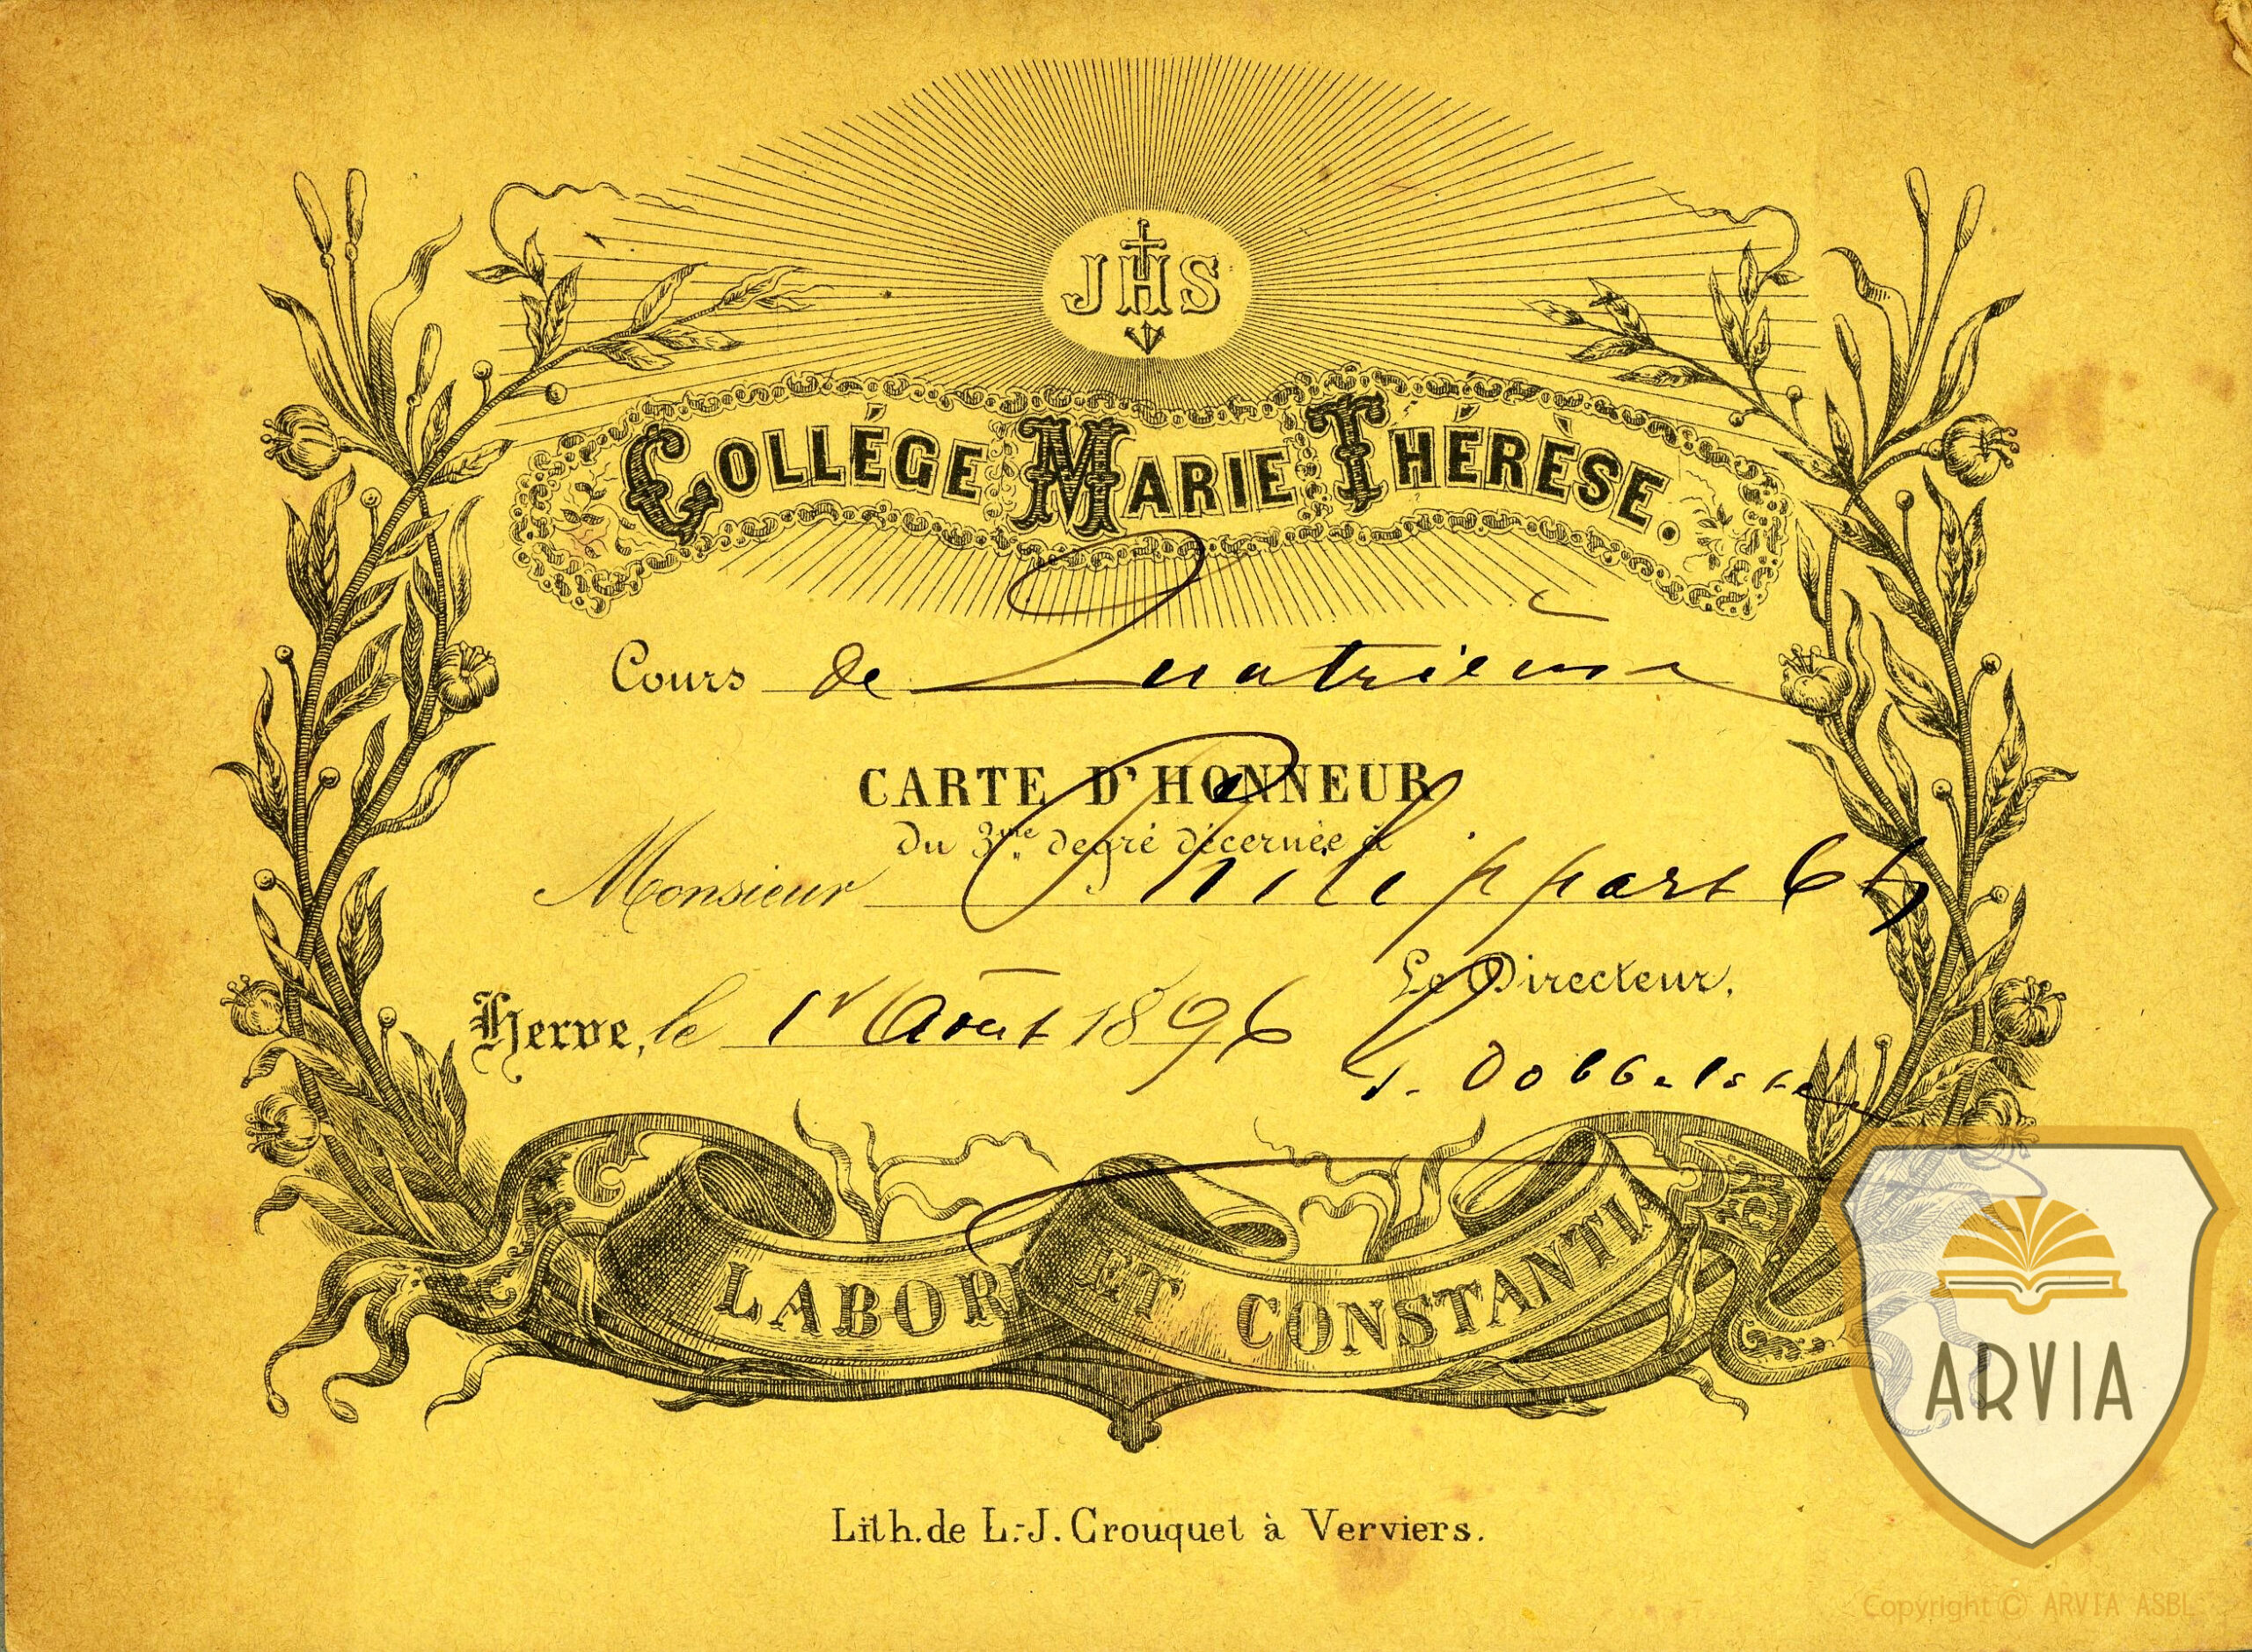 JHS
COLLÉGE MARIE THÉRÈSE.
Cours de Quatrième
CARTE D'HONNEUR
du 3me degré décernée à
Monsieur Philippart
Le Directeur,
Herve, le 1r Août 1896
LABORI ET CONSTANTI
Lith. de L.-J. Crouquet à Verviers.
ARVIA
Copyright © ARVIA ASBL